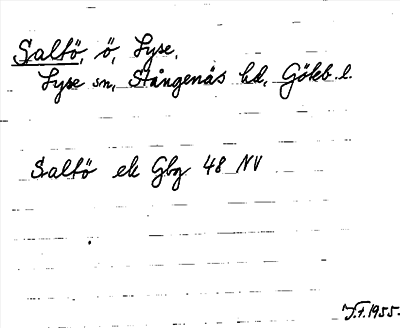 Saltö, ö, Lyse.
Lyse sn, Stångenäs hd, Göteb. l.
Saltö ek Gbg 48 NV
J.F. 1955.